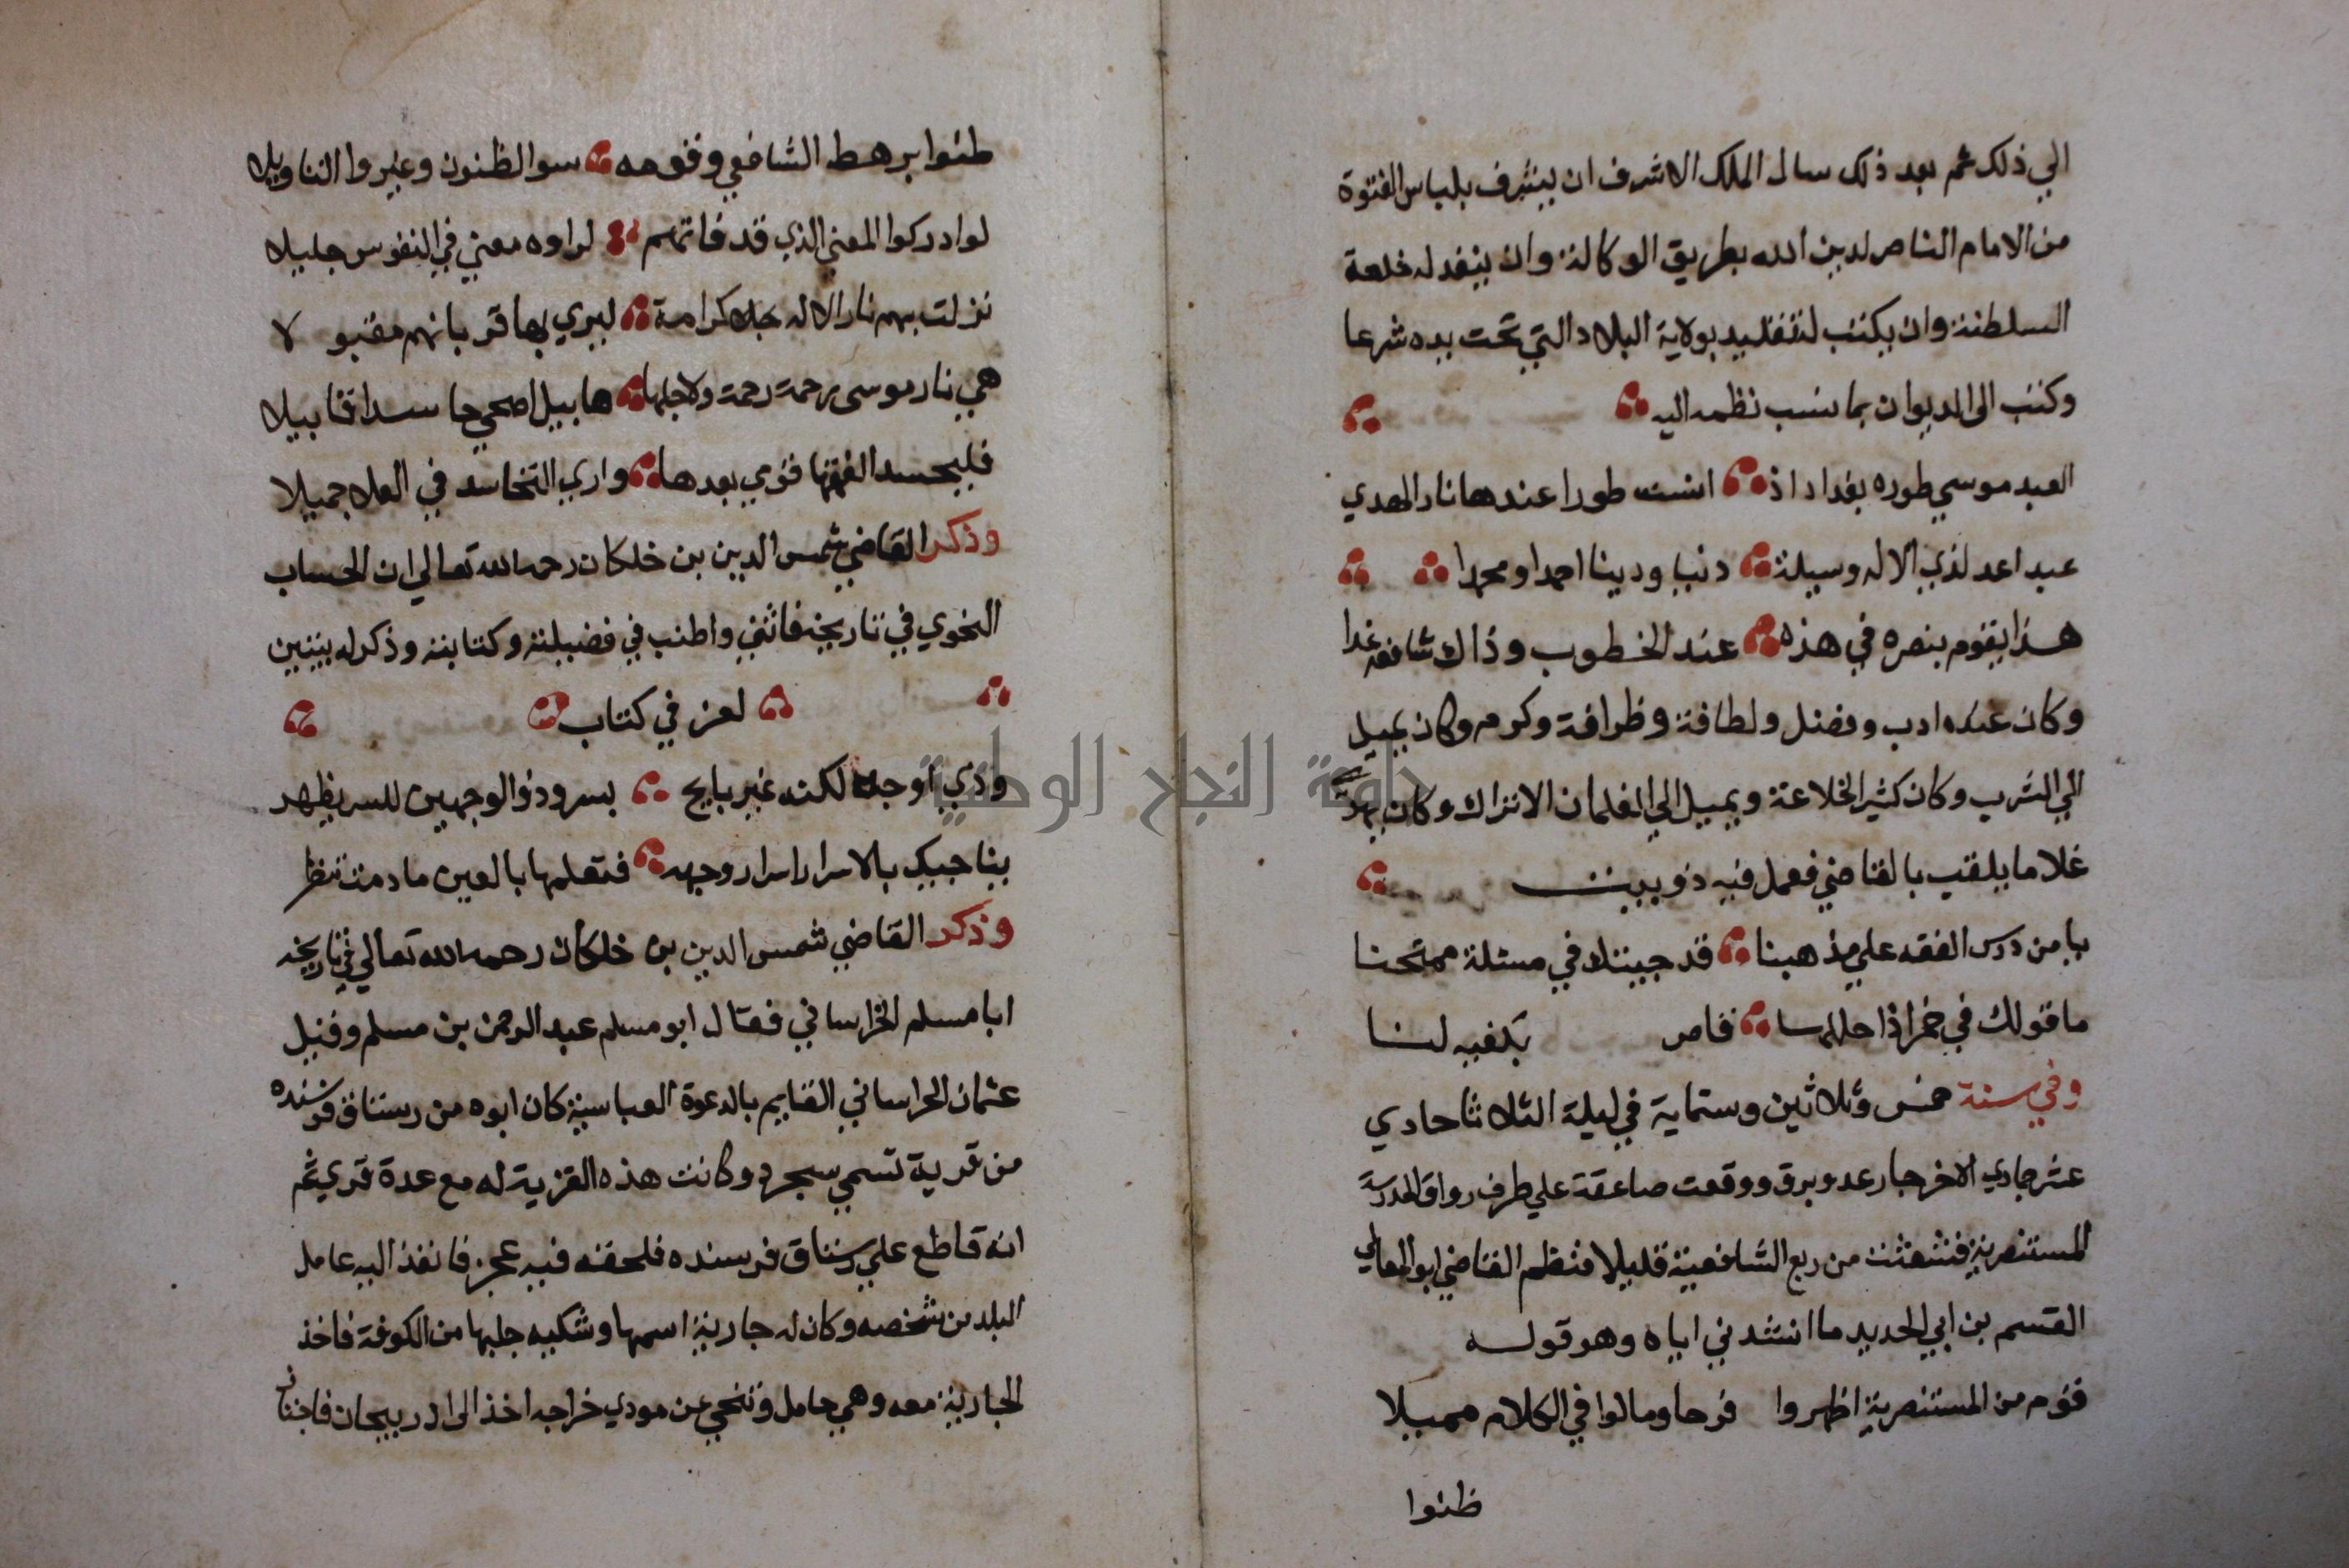 الي ذلك ثم بعد ذلك سال الملك الاشرف ان يتشرف بلباس الفتوة
من الامام الناصر لدين الله بطريق الوكالة وان ينفد له خلعة
السلطنة وان يكتب له تقليد بولاية البلاد التي تحت يده شرعا
وكتب الى الديوان بما نسب نظمه اليه
العبد موسي طوره بغداد اذ انست طورا عندها نار الهدي
عبد اعد لذي الاله وسيلة دنيا ودينا احمدا ومحمدا
هذا يقوم بنصره في هذه عند الخطوب وذاك شافعه غدا
وكان عنده ادب وفضل ولطافة وظرافة وكرم وكان يميل
الي الشرب وكان كثير الخلاعة ويميل الي الغلمان الاتراك وكان يهوي
غلاما يلقب بالقاضي فعمل فيه ذو بيت
يا من درس الفقه علي مذهبنا قد جيتك في مسئلة ممتحنا
ما قولك في خمر اذا حللها قاض يكفيه لنا
وفي سنة خمس وثلاثين وستماية في ليلة الثلاثا حادي
عشر جمادي الاخر جا رعد وبرق ووقعت صاعقة علي طرف رواق المدرسة
المستنصرية فتشعثت من ربع الشافعية قليلا فنظم القاضي ابو المعالي
القسم بن ابي الحديد ما انشدني اياه وهو قوله
قوم من المستنصرية اظهروا فرحا ومالوا في الكلام مميلا
ظنوا
ظنوا برهط الشافعي وقومه سوا لظنون وغيروا التاويلا
لو ادركوا المعني الذي قد فاتهم لراوه معني في النفوس جليلا
نزلت بهم نار الاله جلا كرامة ليري بها قربانهم مقبو لا
هي نار موسى رحمة ولاجلها هابيل اضحي حاسدا قابيلا
فليحسد الفقها قومي بعدها واري التحاسد في العلا جميلا
وذكر القاضي شمس الدين بن خلكان رحمه الله تعالي ان الحساب
النحوي في تاريخه فاثني واطنب في فضيلته وكتابته وذكر له بيتين
لعز في كتاب
وذي اوجه لكنه غير بايح بسر وذو الوجهين للسر يظهر
يناجيك بالاسرار اسرار وجهه فتعلمها بالعين ما دمت تنظر
وذكر القاضي شمس الدين بن خلكان رحمه الله تعالي في تاريخه
ابا مسلم الخراساني فقال ابو مسلم عبد الرحمن بن مسلم وقيل
عثمان الخراساني القايم بالدعوة العباسية كان ابوه من رستاق فرشنده
من قرية تسمي سجرد وكانت هذه القرية له مع عدة قري ثم
انه قاطع علي رستاق فرسنده فلحقه فيه عجز فانفذ اليه عامل
البلد من شخصه وكان له جارية اسمها وشكيه جلبها من الكوفة فاخذ
الجارية معه وهي حامل وتنحي عن مودي خراجه اخذ الى ادربيجان فاجتاز
جامعة النجاح الوطنية